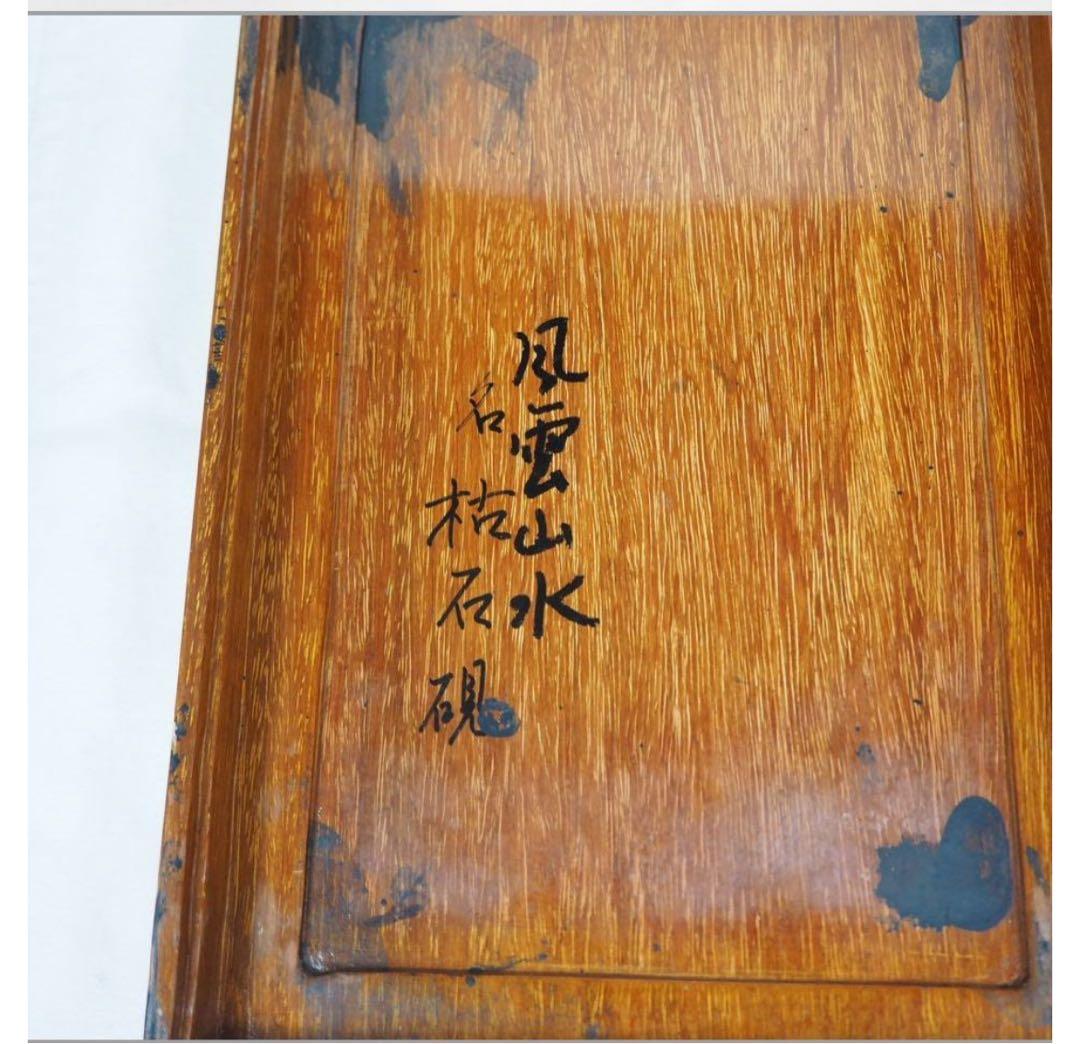 風雲山水
名枯石硯